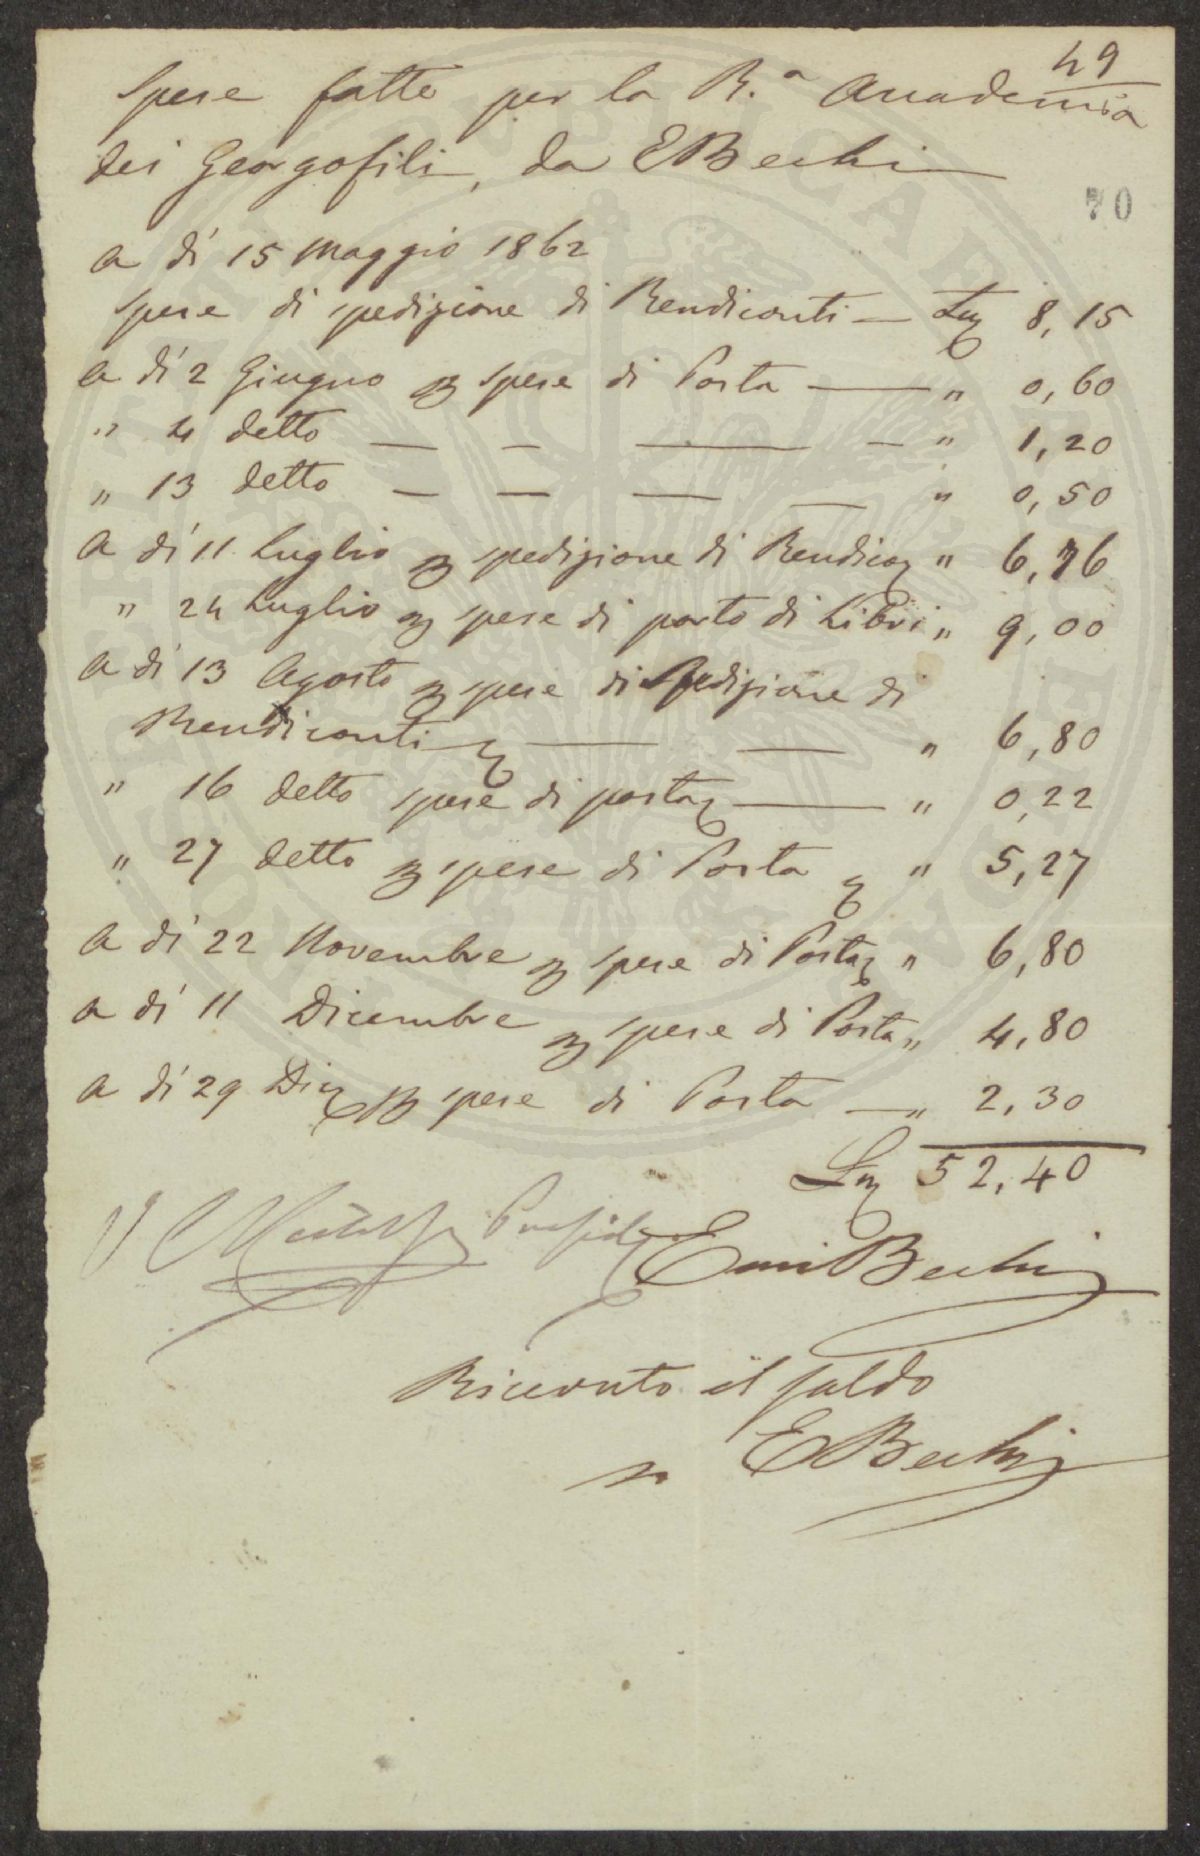 49
Spese fatte per la R.a Accademia
dei Georgofili, da EBechi
70
a dí 15 Maggio 1862
Spese di spedizione di Rendiconti — 8,15
a dí 2 Giugno spese di Posta — " 0,60
" 4 detto — — — — " 1,20
" 13 detto — — — — " 0,50
a dí 11 Luglio spedizione di " 6,76
" 24 Luglio spese di porto di Libri " 9,00
a dí 13 Agosto spese di Spedizione di
Rendiconti — — " 6,80
" 16 detto spese di posta — " 0,22
" 27 detto spese di Posta " 5,27
a dí 22 Novembre spese di Posta " 6,80
a dí 11 Dicembre spese di Posta " 4,80
a dí 29 spese di Posta — " 2,30
52,40
Emi Bechi
Ricevuto il saldo
EBechi